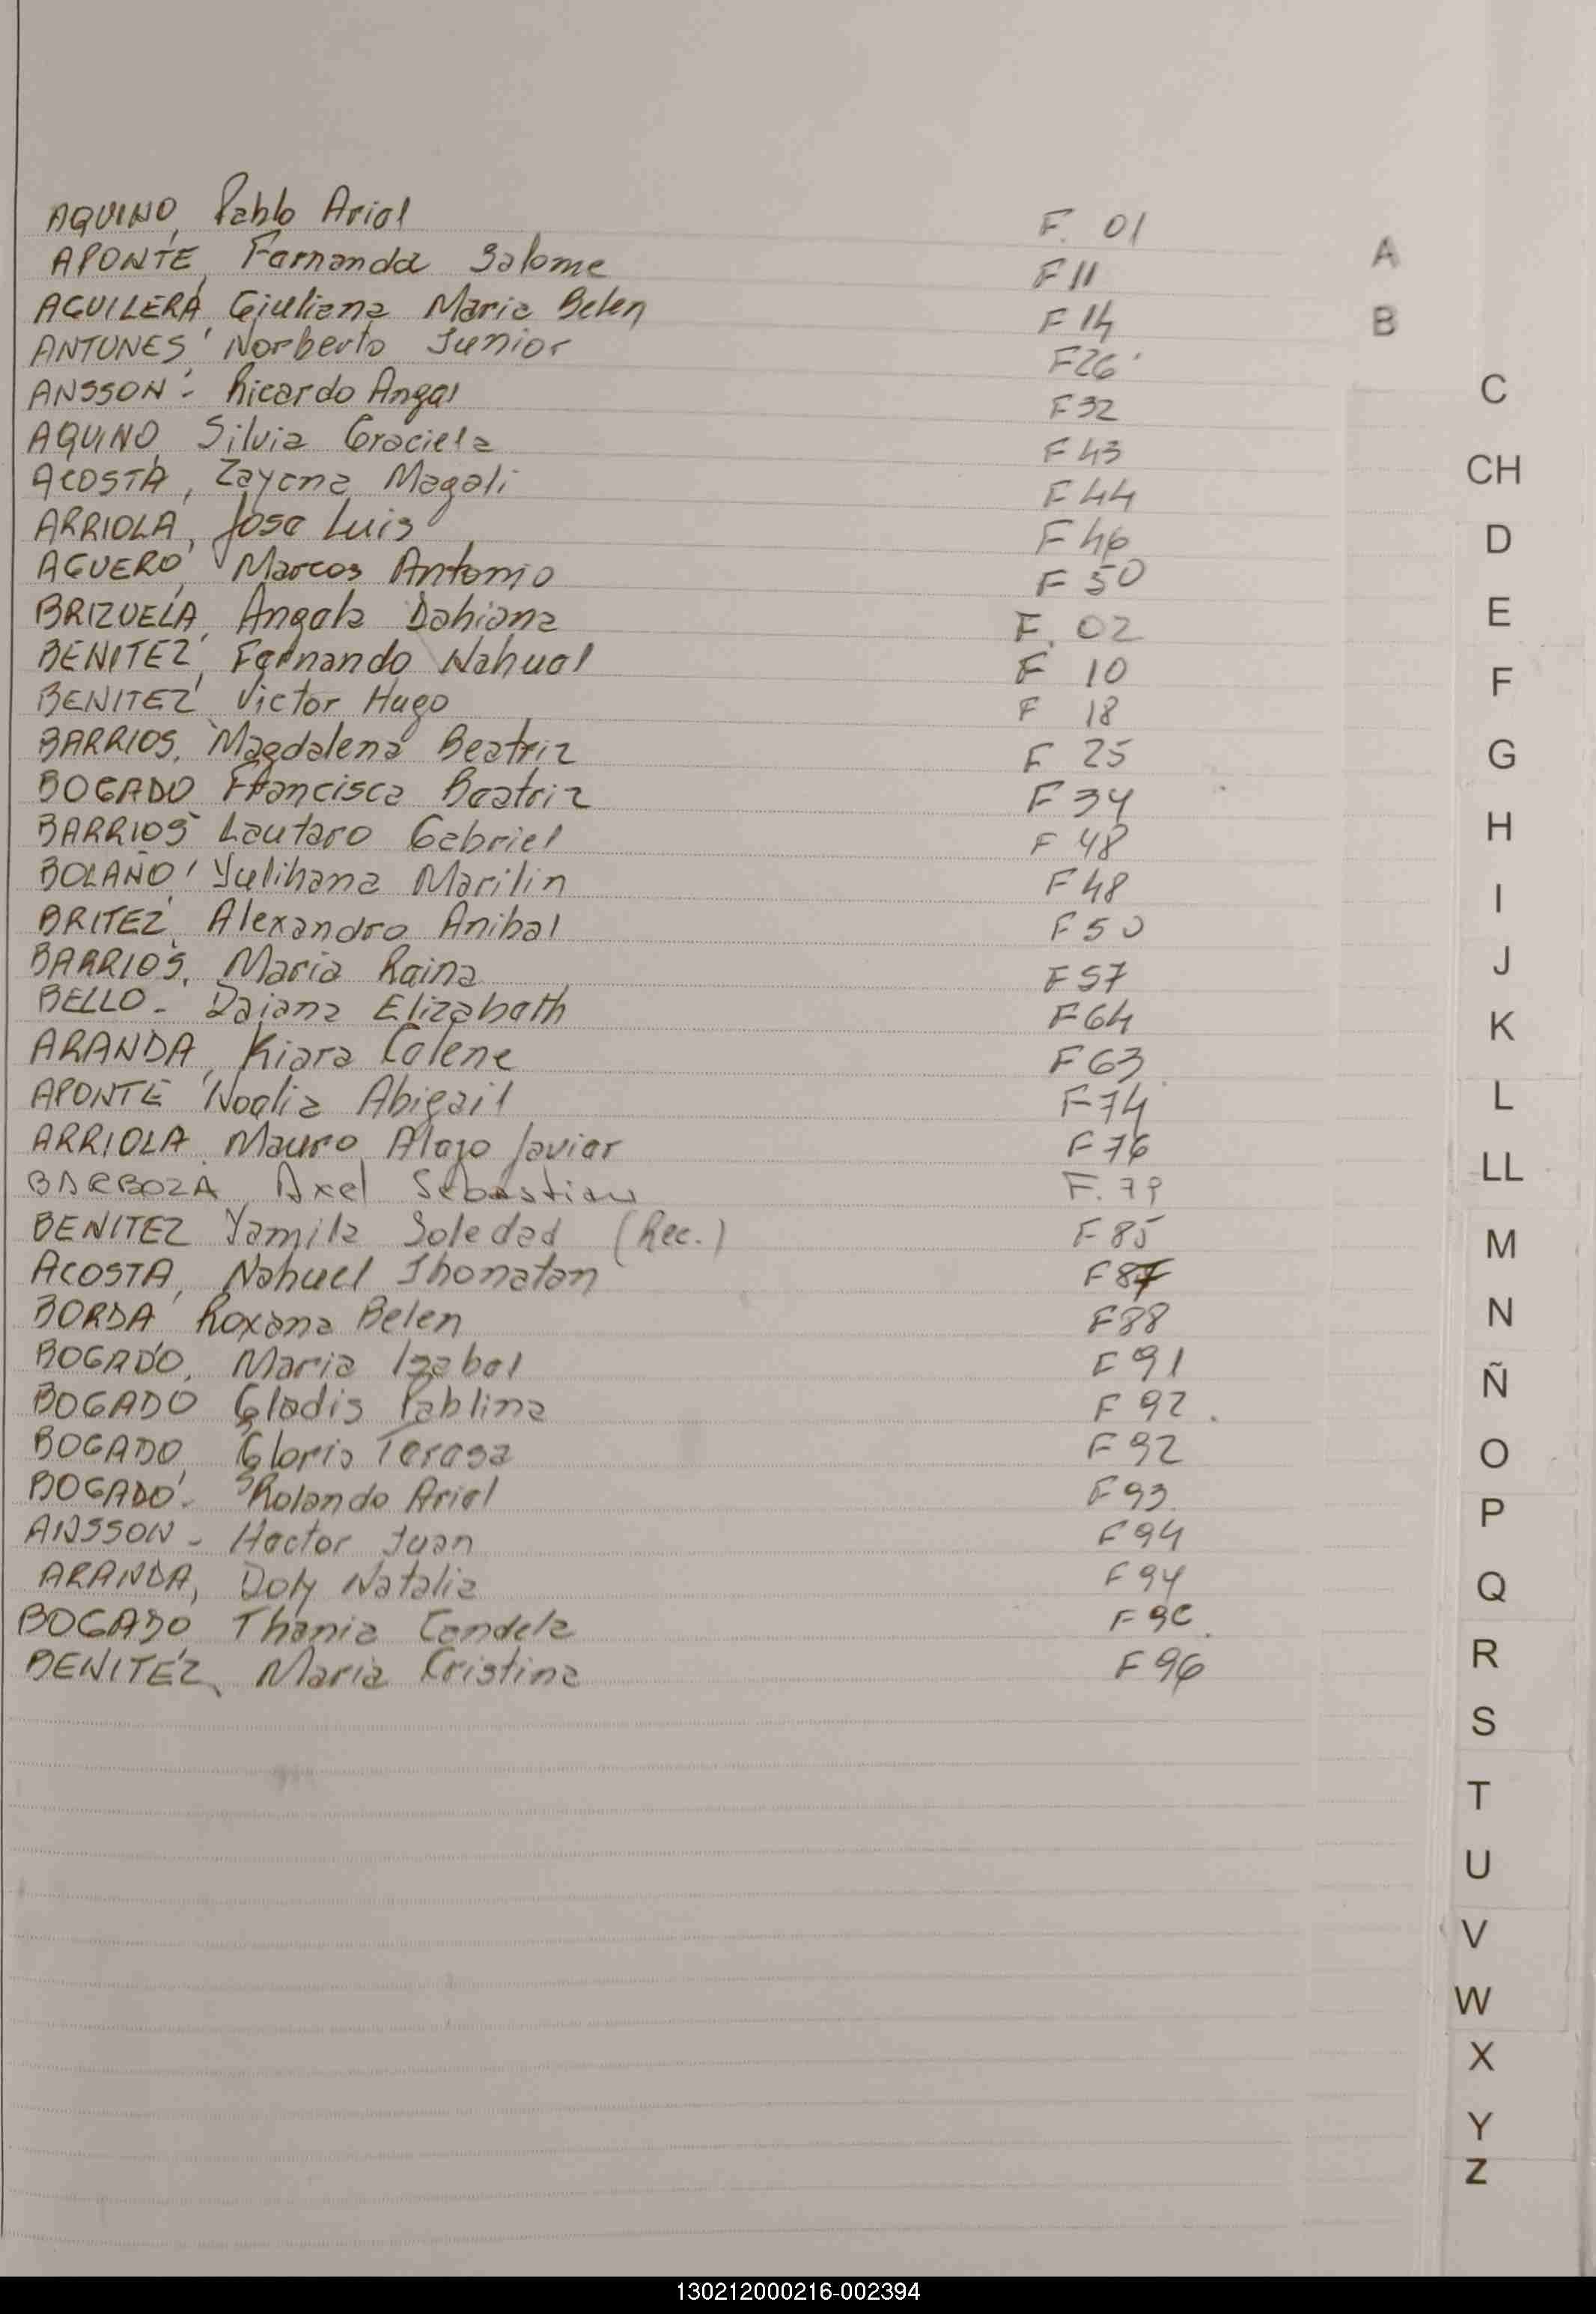 AQUINO, Pablo Ariel F. 01
APONTE, Fernanda Salome F 11
AGUILERA, Giuliana Maria Belen F 14
ANTUNES, Norberto Junior F26
ANSSON - Ricardo Angel F32
AQUINO, Silvia Graciela F 43
ACOSTA, Zayana Magali F 44
ARRIOLA, Jose Luis F 46
AGUERO, Marcos Antonio F 50
BRIZUELA, Angela Dahiana F. 02
BENITEZ, Fernando Nahuel F 10
BENITEZ, Victor Hugo F 18
BARRIOS, Magdalena Beatriz F 25
BOGADO Francisca Beatriz F 34
BARRIOS Lautaro Gabriel F 48
BOLAÑO, Yulihana Marilin F 48
BRITEZ, Alexandro Anibal F 50
BARRIOS, Maria Raina F 57
BELLO - Daiana Elizabeth F 64
ARANDA, Kiara Calene F 63
APONTE, Noelia Abigail F 74
ARRIOLA, Mauro Alejo Javier F 76
BARBOZA, Axel Sebastian F. 79
BENITEZ Yamila Soledad (Rec.) F 85
ACOSTA, Nahuel Jhonatan F87
BORDA, Roxana Belen F88
BOGADO, Maria Izabel F 91
BOGADO Gladis Pablina F 92.
BOGADO Gloria Teresa F 92
BOGADO - Rolando Ariel F 93.
ANSSON - Hector Juan F 94
ARANDA, Doly Natalia F 94
BOGADO Thania Candela
BENITEZ, Maria Cristina F 96
A
B
C
CH
D
E
F
G
H
I
J
K
L
LL
M
N
Ñ
O
P
Q
R
S
T
U
V
W
X
Y
Z
130212000216-002394